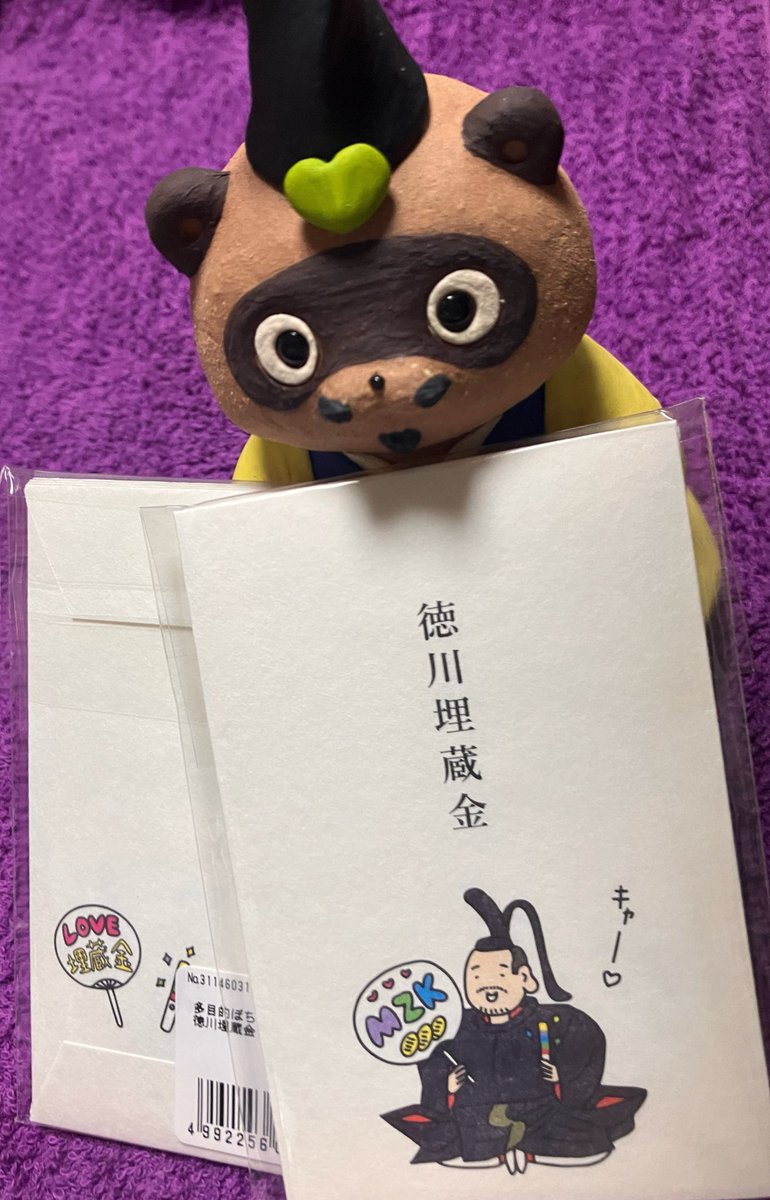 徳川埋蔵金
キャー♡
MZK
LOVE
埋蔵金
No.31146031
多目的ぽち
徳川埋蔵金
4 992256